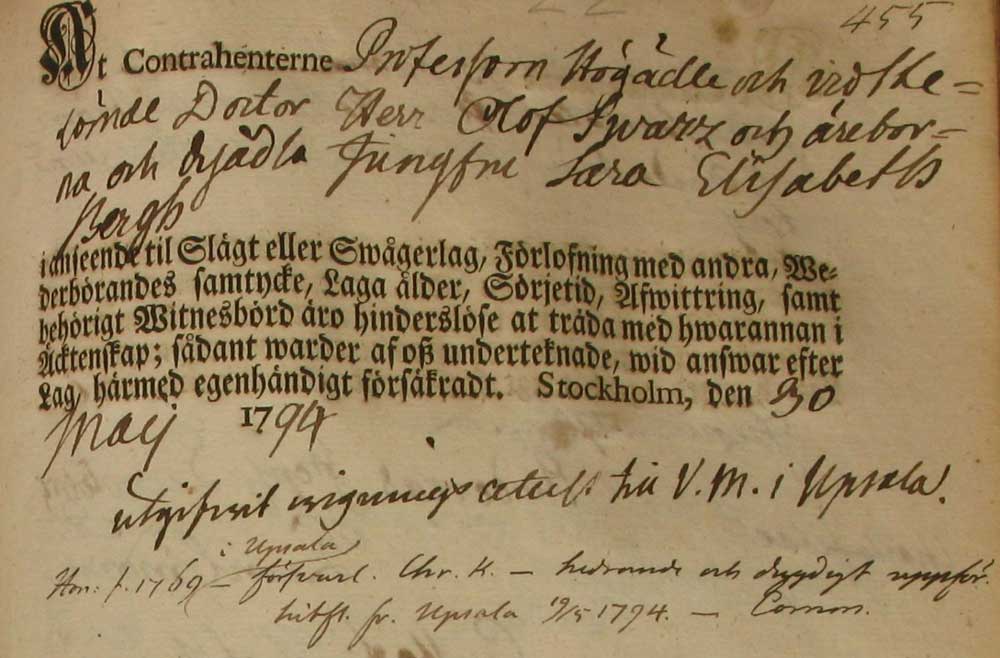 455
At Contrahenterne Professorn Högädle och vidtbe=
römde Doctor Herr Olof Swarz och ärebor=
na och dygdädla Jungfru Sara Elisabeth
Bergh
i anseende til Slägt eller Swågerlag, Förlofning med andra, We-
derbörandes samtycke, Laga ålder, Sörjetid, Afwittring, samt
behörigt Witnesbörd äro hinderslöse at träda med hwarannan i
Äcktenskap; sådant warder af oß underteknade, wid answar efter
Lag, härmed egenhändigt försäkradt. Stockholm, den 30
Maij 1794
utgifwit wignings attest till V. M. i Upsala.
i Upsala
Hon: f. 1769 – Chr. K. – hedrande och dygdigt uppför.
fr. Upsala 19/5 1794. –